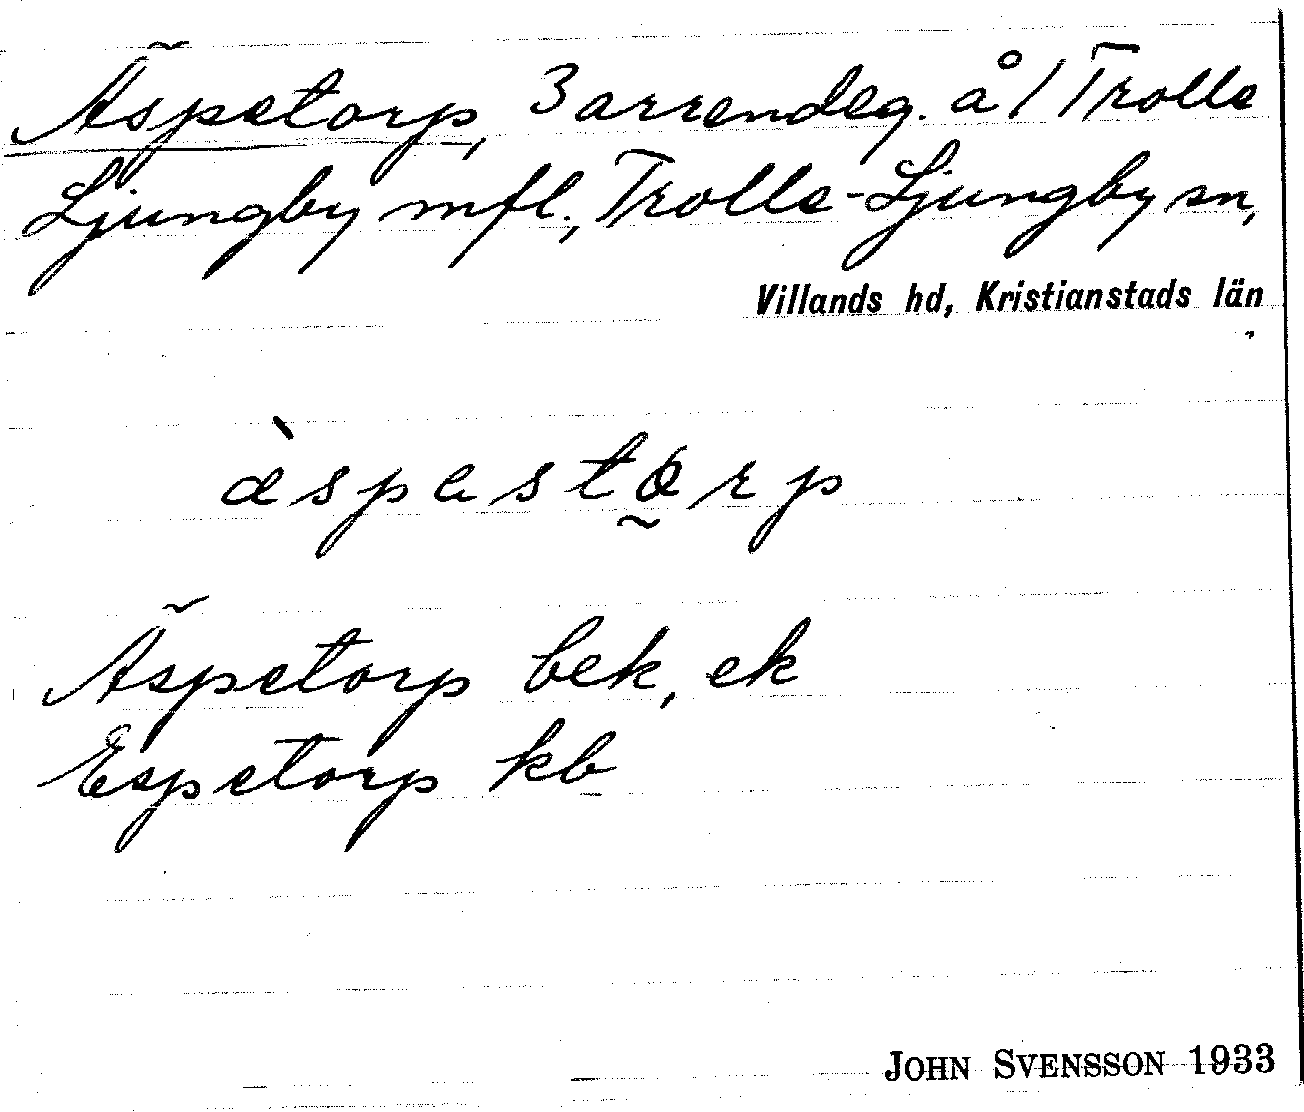 Äspetorp, 3 arrendeg. å 1 Trolle
Ljungby mfl., Trolle-Ljungby sn,
Villands hd, Kristianstads län
æ̀spastø̰rp
Äspetorp bek, ek
Espetorp kb
JOHN SVENSSON 1933